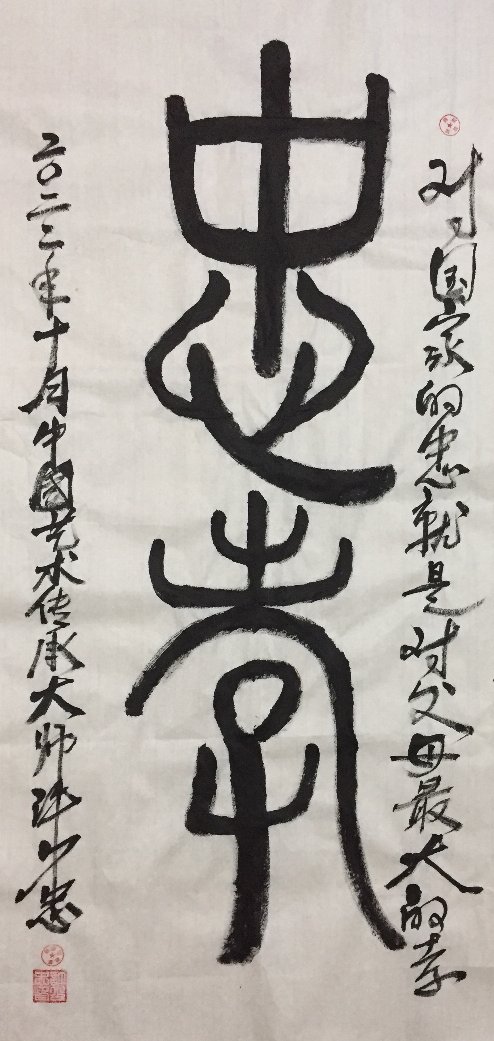 对于国家的忠就是对父母最大的孝
忠孝
二〇二三年十月中国艺术传承大师